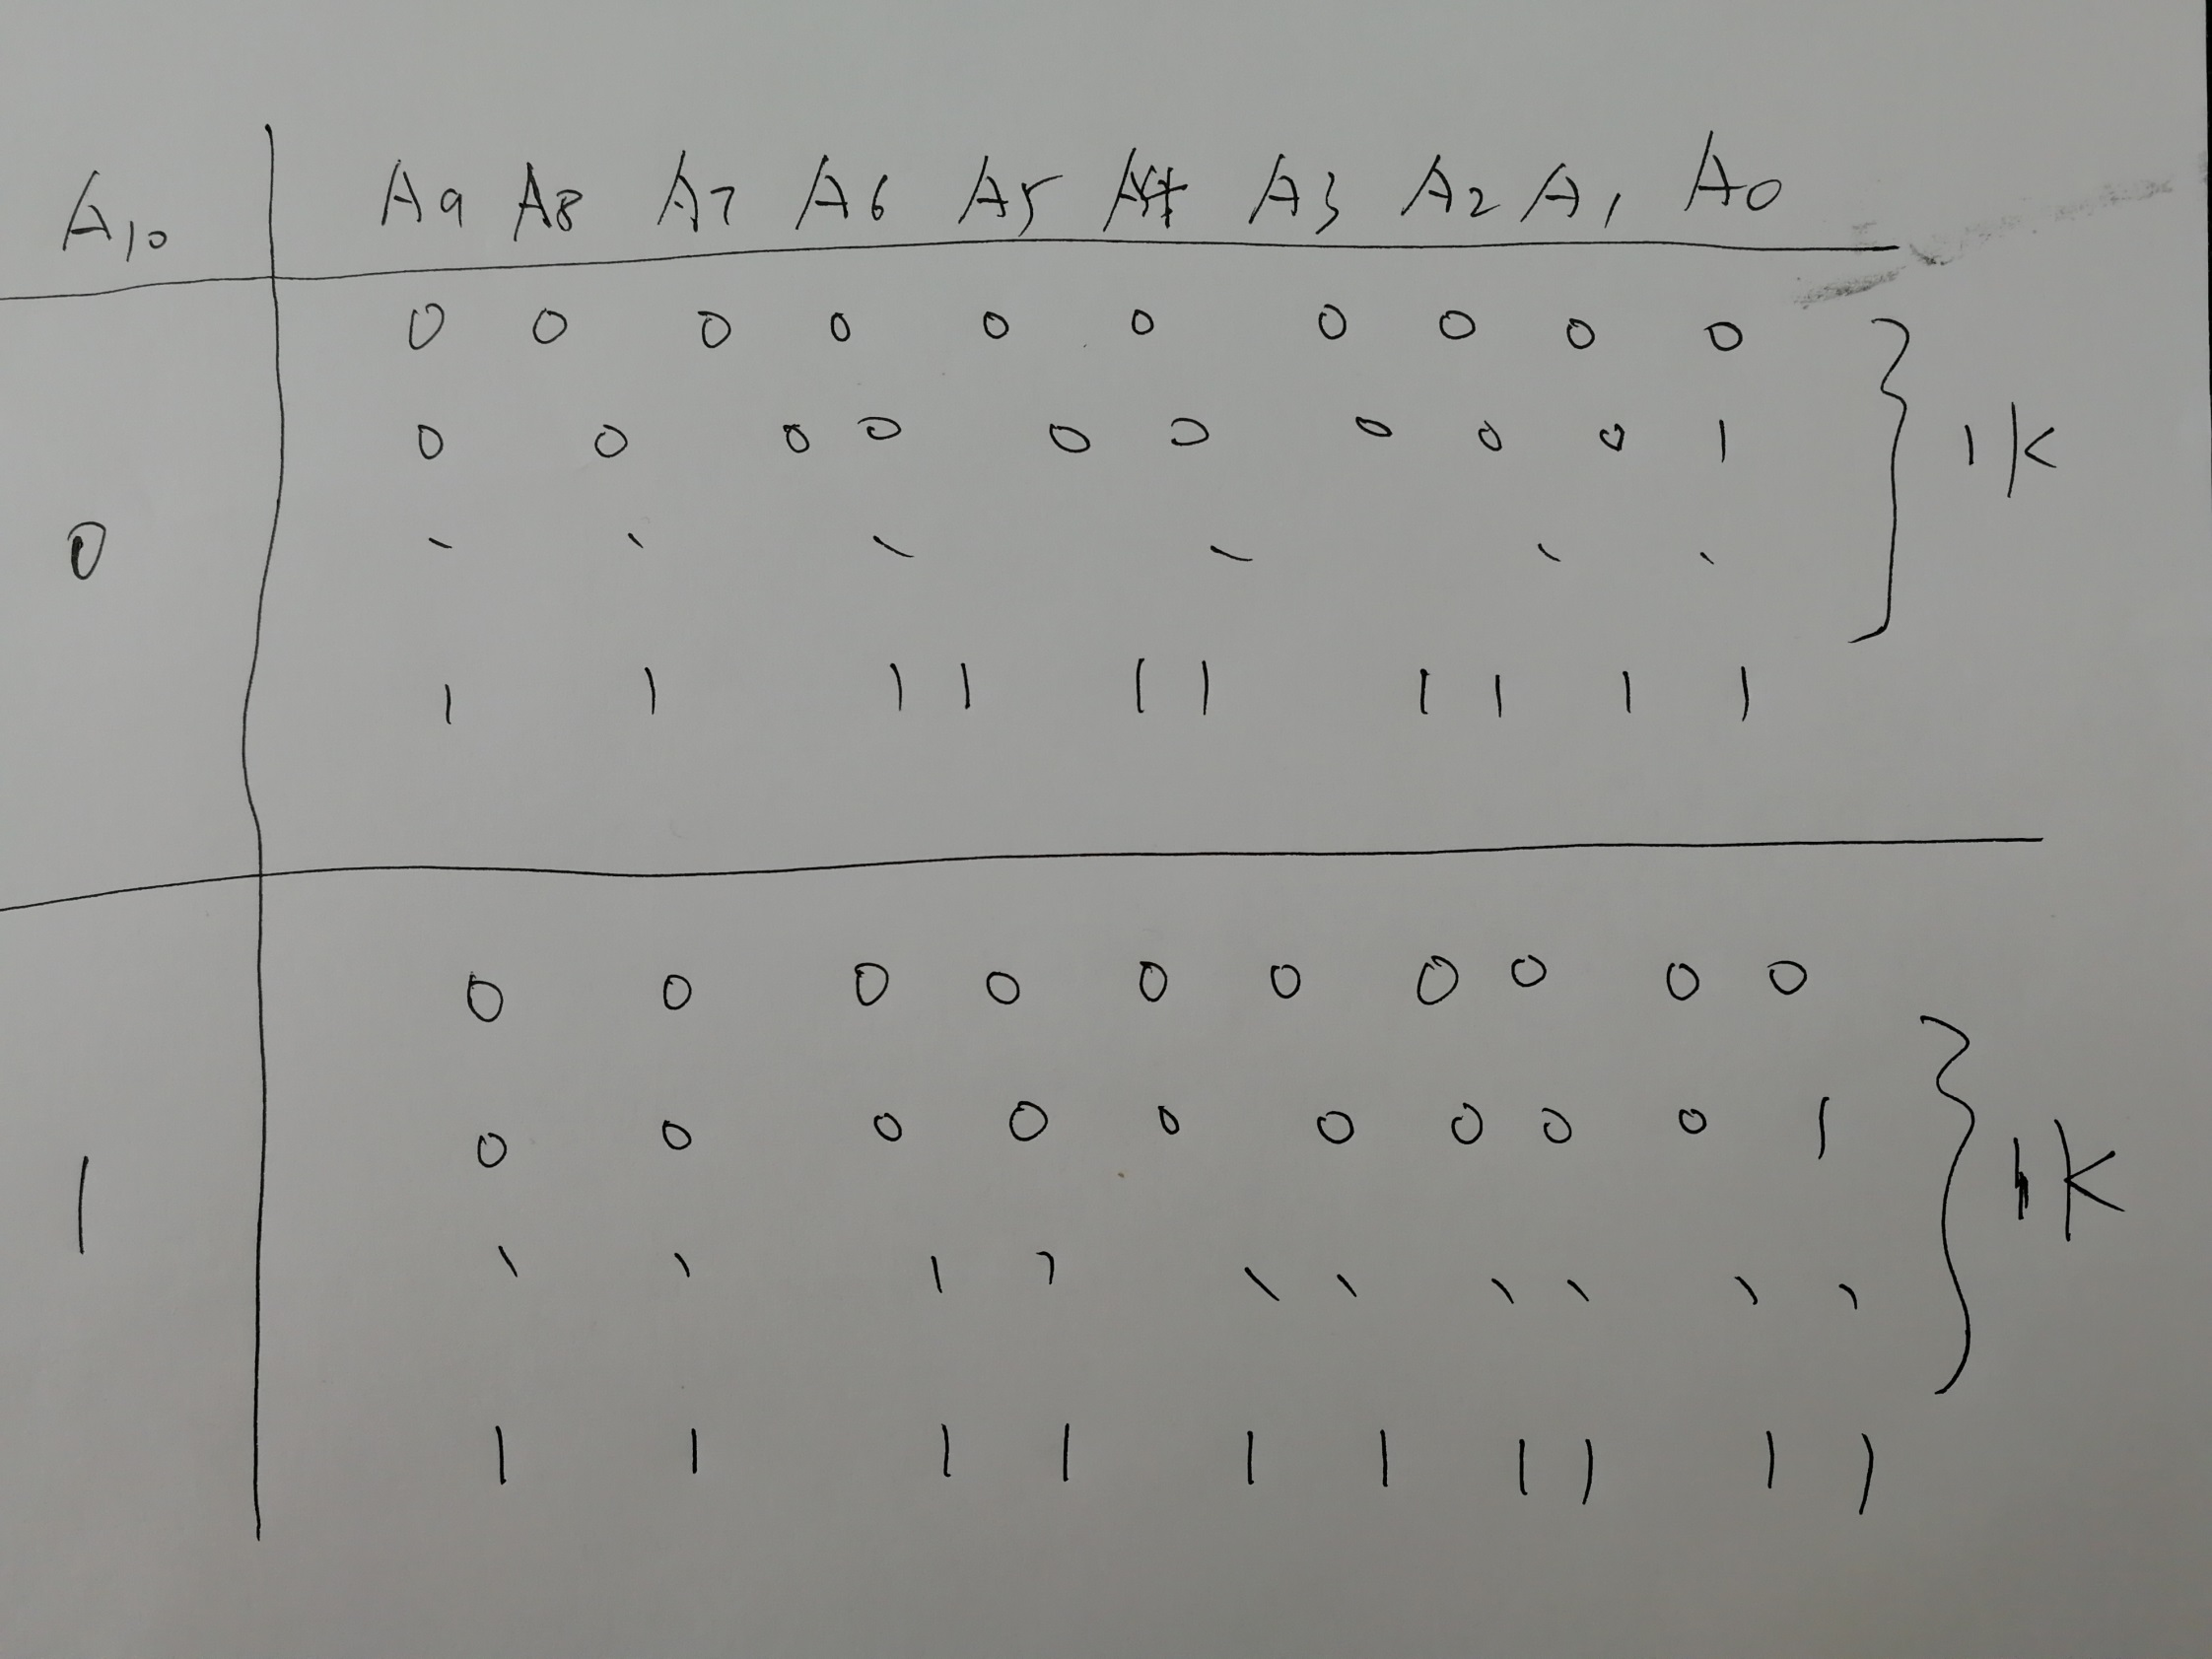 A10 A9 A8 A7 A6 A5 A4 A3 A2 A1 A0
0 0 0 0 0 0 0 0 0 0
0 0 0 0 0 0 0 0 0 1
1K
0
1 1 1 1 1 1 1 1 1 1
0 0 0 0 0 0 0 0 0 0
0 0 0 0 0 0 0 0 0 1
1 1K
1 1 1 1 1 1 1 1 1 1